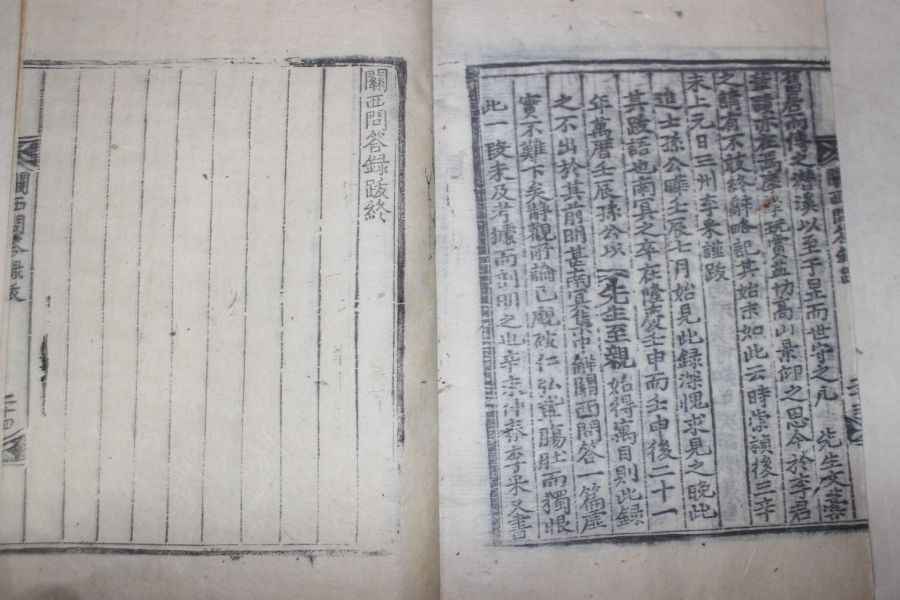 舊居而傳之潛溪以至于昱而世守之凡 先生文藁
玩賞益切高山景仰之思今於李君
之請有不敢終辭略記其始末如此云時崇禎後三辛
未上元日三州李采謹跋
進士孫公曄壬辰七月始見此錄深愧求見之晚此
其跋語也南冥之卒在隆慶壬申而壬申後二十一
年萬曆壬辰孫公以 先生至親始得寓目則此錄
之不出於其前明甚南冥集中解關西問答一篇虛
實不難下矣靜觀所論已覷破仁弘 腸肚而獨恨
此一段未及考據而剖明之也辛未仲春李采又書
關西問答錄跋
關西問答錄跋終
關西問答錄跋
二十四